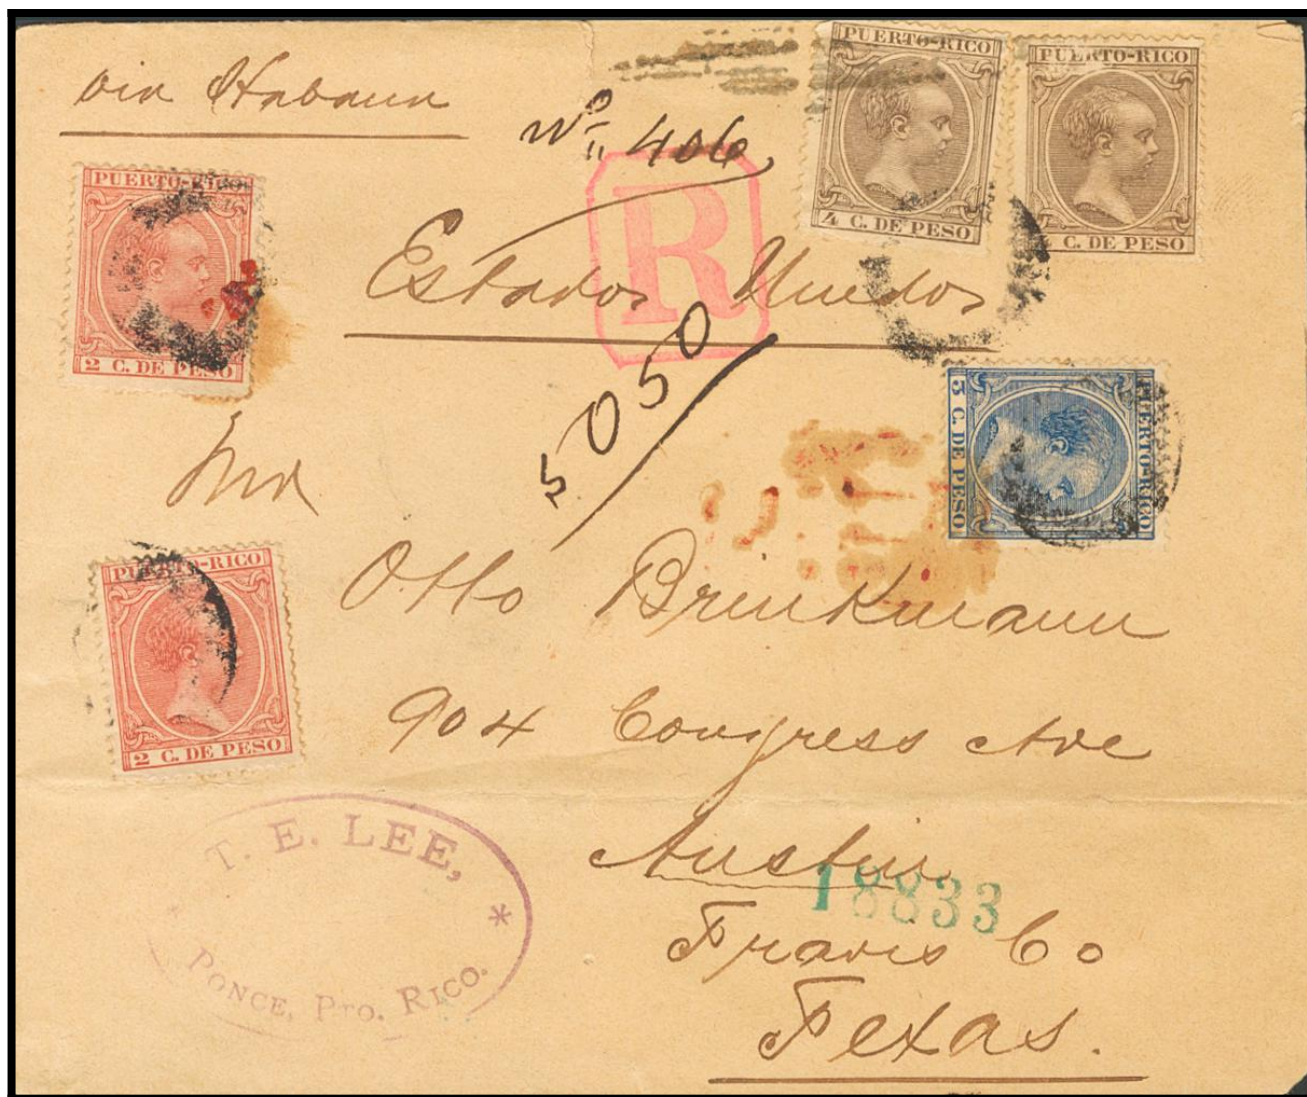 via Habana
Nº 406
PUERTO-RICO
4 C. DE PESO
PUERTO-RICO
C. DE PESO
PUERTO-RICO
2 C. DE PESO
R
Estados Unidos
5050
PUERTO-RICO
5 C. DE PESO
PUERTO-RICO
2 C. DE PESO
Otto Brinkmann
904 Congress Ave
Austin
18833
Travis Co
Texas.
T. E. LEE,
*
PONCE, PTO. RICO.